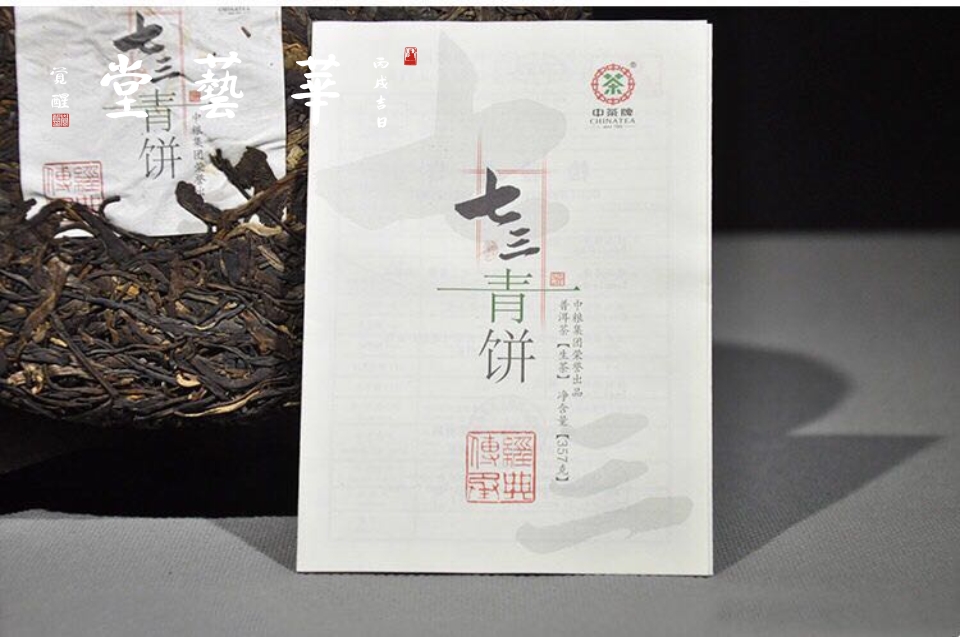 華藝堂
丙戌吉日
覚醒
七三
青
饼
中粮集团荣誉出
經典
傳
中茶牌
CHINATEA
七三
七三
青
饼
中粮集团荣誉出品
普洱茶【生茶】 净含量【357克】
經典
傳承